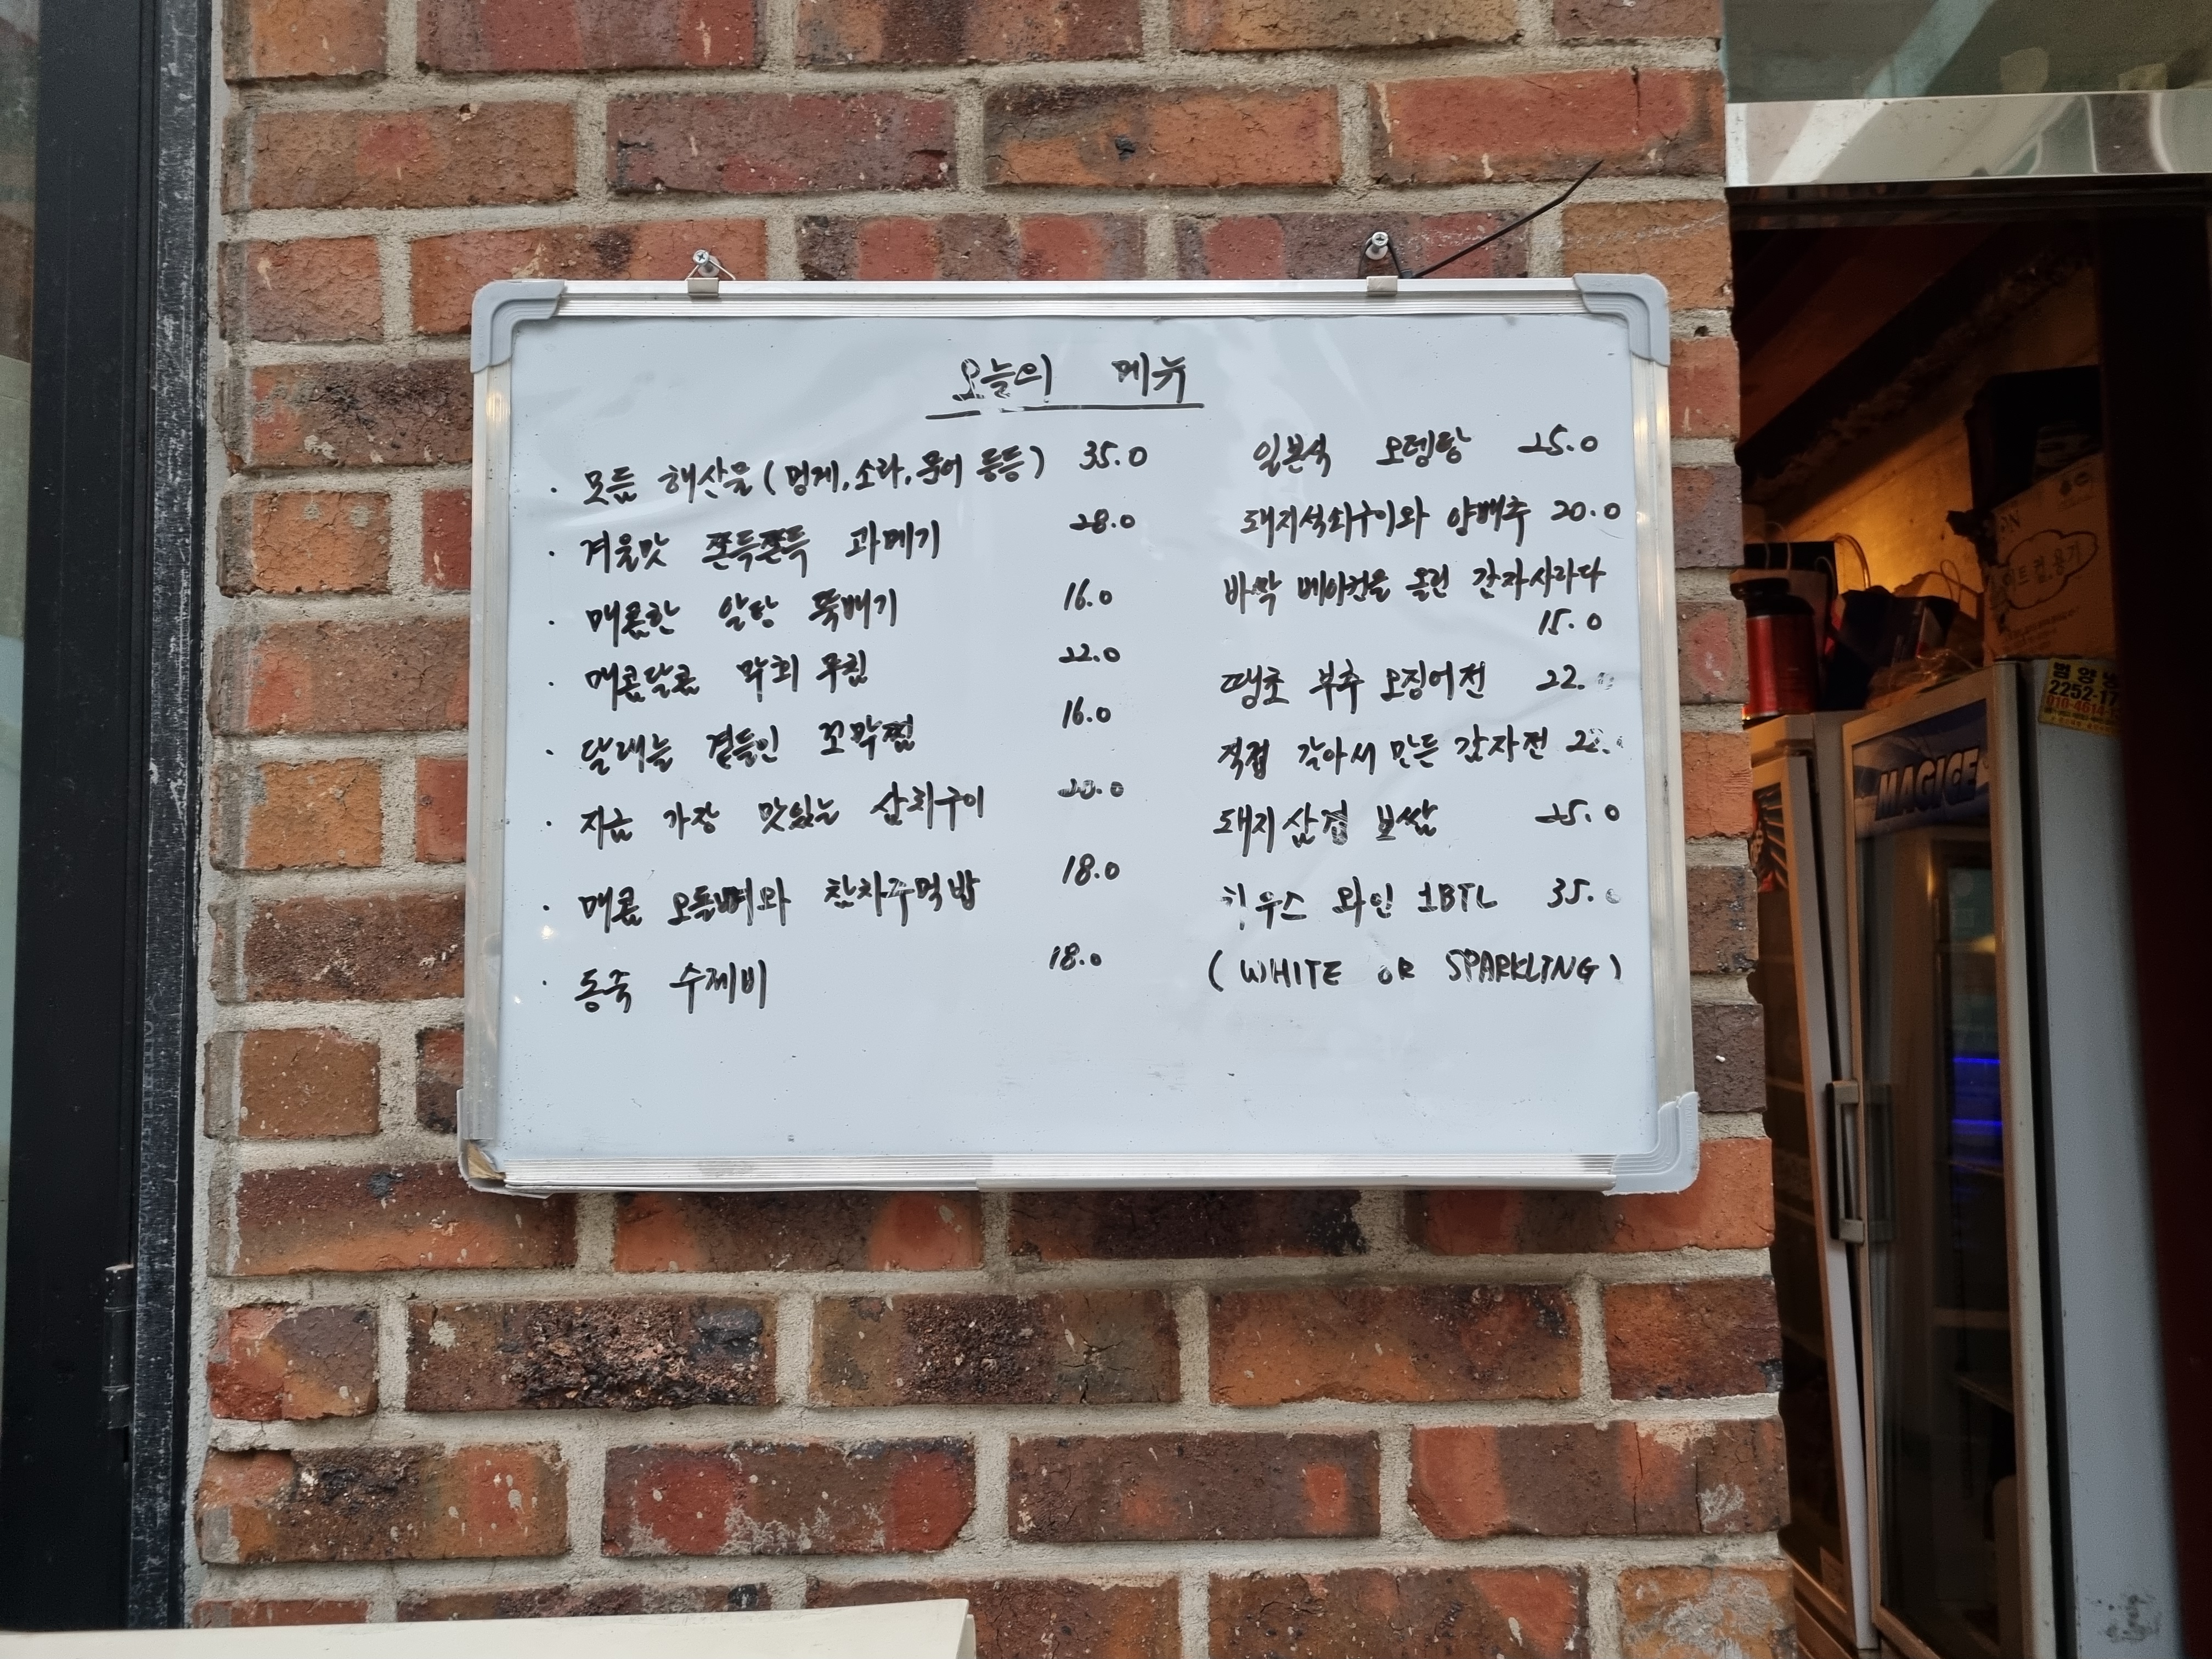 오늘의 메뉴
· 모듬 해산물 (멍게, 소라, 문어 등등) 35.0
· 겨울맛 쫀득쫀득 과메기 28.0
· 매콤한 알탕 뚝배기 16.0
· 매콤달콤 막회 무침 22.0
· 달래를 곁들인 꼬막찜 16.0
· 지금 가장 맛있는 삼치구이 20.0
· 매콤 오돌뼈와 참치주먹밥 18.0
· 동죽 수제비 18.0
일본식 오뎅탕 25.0
돼지석쇠구이와 양배추 20.0
바싹 베이컨을 올린 감자사라다
15.0
땡초 부추 오징어전 22.
직접 갈아서 만든 감자전
돼지삼겹 보쌈 25.0
하우스 와인 1BTL 35.0
(WHITE OR SPARKLING)
MAGICE
범양
2252-17
010-4614-